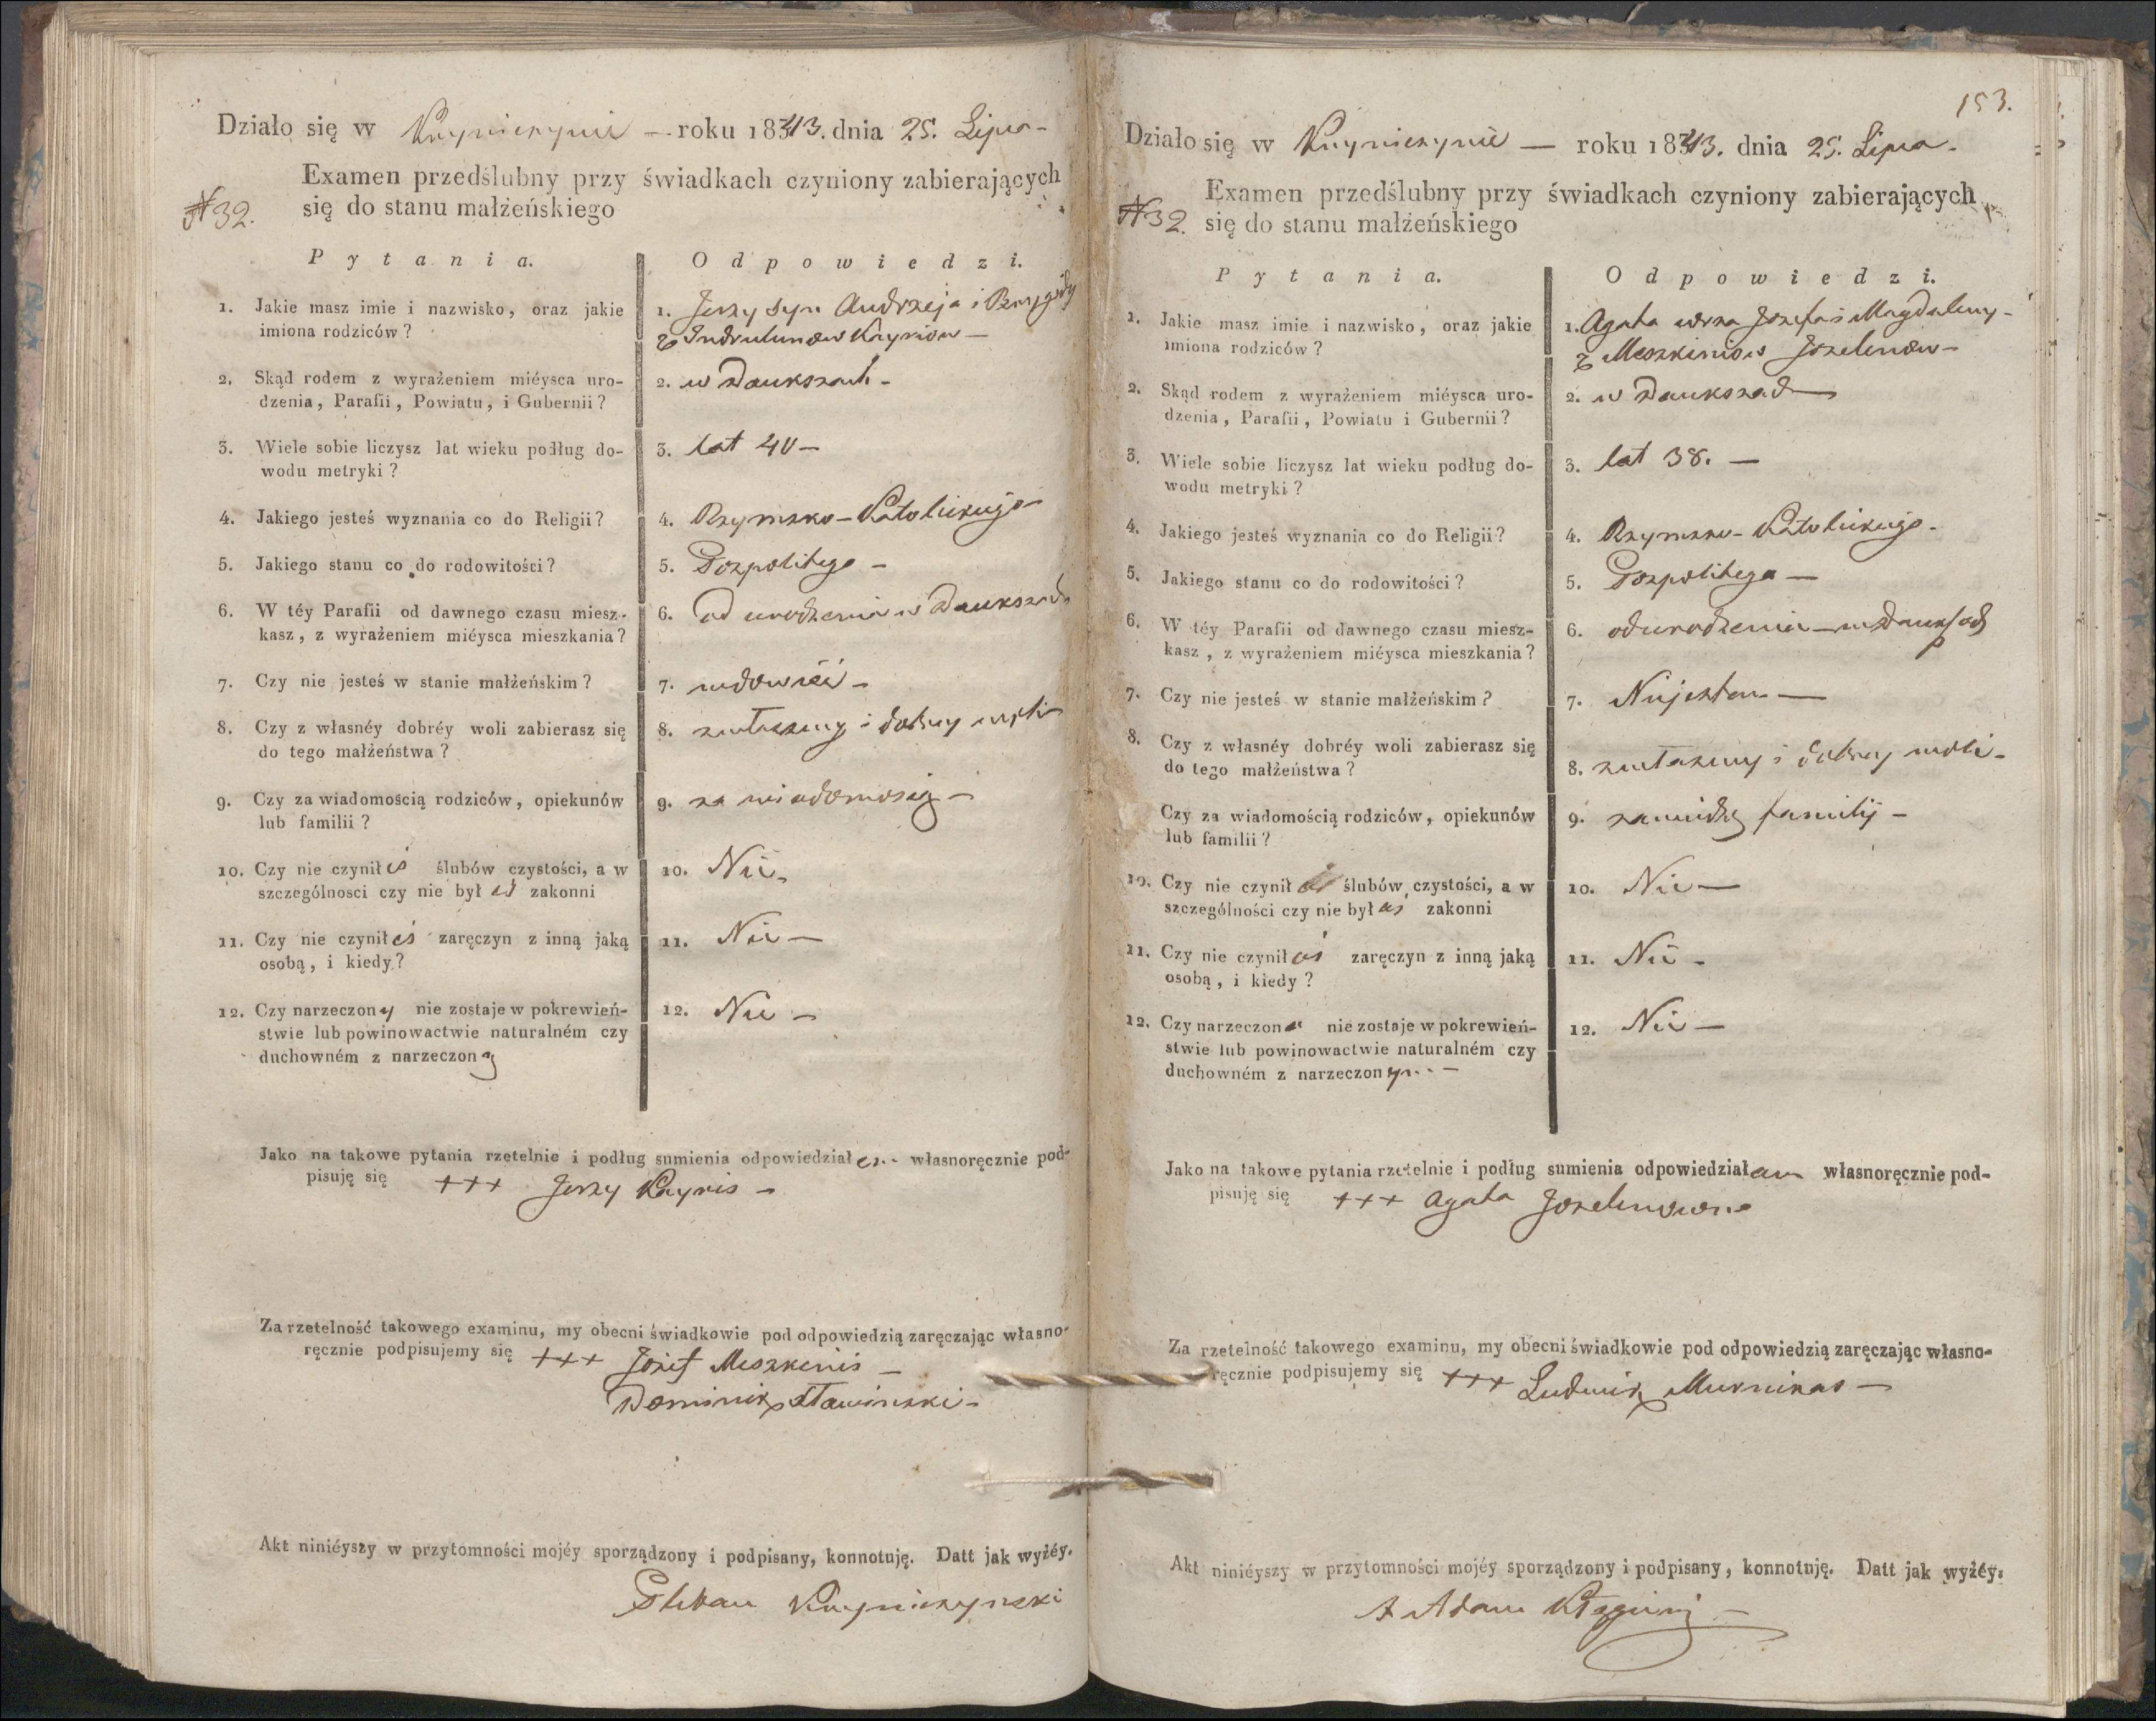 Działo się w Knyniszynie — roku 1843. dnia 25. Lipca -
Examen przedślubny przy świadkach czyniony zabierających
№ 32. się do stanu małżeńskiego
Pytania. Odpowiedzi.
1. Jakie masz imie i nazwisko, oraz jakie
imiona rodziców?
1. Jerzy syn Andrzeja i
z Knyriow —
2. Skąd rodem z wyrażeniem miéysca uro-
dzenia, Parafii, Powiatu, i Gubernii?
2. w Daukszach -
3. Wiele sobie liczysz lat wieku podług do-
wodu metryki?
3. lat 40 —
4. Jakiego jesteś wyznania co do Religii?
4. Rzymsko-Katolickiego
5. Jakiego stanu co do rodowitości?
5. Pospolitego —
6. W téy Parafii od dawnego czasu miesz-
kasz, z wyrażeniem miéysca mieszkania?
6. od urodzenia w Daukszach
7. Czy nie jesteś w stanie małżeńskim?
7. wdowiéc -
8. Czy z własnéy dobréy woli zabierasz się
do tego małżeństwa?
8. z własney i dobrey woli
9. Czy za wiadomością rodziców, opiekunów
lub familii?
9. za wiadomością —
10. Czy nie czynił eś ślubów czystości, a w
szczególnosci czy nie był eś zakonni
10. Nie -
11. Czy nie czynił eś zaręczyn z inną jaką
osobą, i kiedy?
11. Nie —
12. Czy narzeczon y nie zostaje w pokrewień-
stwie lub powinowactwie naturalném czy
duchowném z narzeczon ą
12. Nie —
Jako na takowe pytania rzetelnie i podług sumienia odpowiedział em własnoręcznie pod-
pisuję się +++ Jerzy Knyris —
Za rzetelność takowego examinu, my obecni świadkowie pod odpowiedzią zaręczając własno-
ręcznie podpisujemy się +++ Józef Meszkinis —
Dominik Sławinski -
Akt niniéyszy w przytomności mojéy sporządzony i podpisany, konnotuję. Datt jak wyżéy.
Knyniszynski
153.
Działo się w Knyniszynie — roku 1843. dnia 25. Lipca -
Examen przedślubny przy świadkach czyniony zabierających
№ 32. się do stanu małżeńskiego
Pytania. Odpowiedzi.
1. Jakie masz imie i nazwisko, oraz jakie
imiona rodziców?
1. Agata Jozefa i Magdaleny -
z Meszkiniow Jozelunow -
2. Skąd rodem z wyrażeniem miéysca uro-
dzenia, Parafii, Powiatu i Gubernii?
2. w Daukszach
3. Wiele sobie liczysz lat wieku podług do-
wodu metryki?
3. lat 38. —
4. Jakiego jesteś wyznania co do Religii?
4. Rzymsko-Katolickiego -
5. Jakiego stanu co do rodowitości?
5. Pospolitego —
6. W téy Parafii od dawnego czasu miesz-
kasz, z wyrażeniem miéysca mieszkania?
6. od urodzenia w Daukszach
7. Czy nie jesteś w stanie małżeńskim?
7. Niejestem —
8. Czy z własnéy dobréy woli zabierasz się
do tego małżeństwa?
8. z własney i dobrey woli -
Czy za wiadomością rodziców, opiekunów
lub familii?
9. za wiedzą familij -
10. Czy nie czynił aś ślubów czystości, a w
szczególności czy nie był aś zakonni
10. Nie —
11. Czy nie czynił aś zaręczyn z inną jaką
osobą, i kiedy?
11. Nie -
12. Czy narzeczon a nie zostaje w pokrewień-
stwie lub powinowactwie naturalném czy
duchowném z narzeczon ym —
12. Nie —
Jako na takowe pytania rzetelnie i podług sumienia odpowiedział am własnoręcznie pod-
pisuję się +++ Agata Jozelunowna
Za rzetelność takowego examinu, my obecni świadkowie pod odpowiedzią zaręczając własno-
ręcznie podpisujemy się +++ Ludwik Murnikas —
Akt niniéyszy w przytomności mojéy sporządzony i podpisany, konnotuję. Datt jak wyżéy.
X Adam